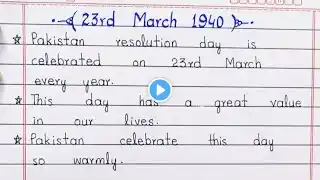 23rd March 1940
Pakistan resolution day is
celebrated on 23rd March
every year.
This day has a great value
in our lives.
Pakistan celebrate this day
so warmly.